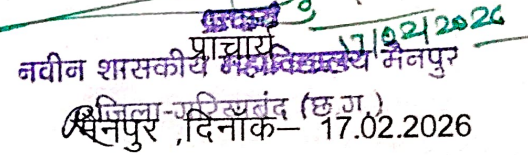 17/02/2026
प्राचार्य
नवीन शासकीय महाविद्यालय मैनपुर
जिला-गरियाबंद (छ.ग.)
मैनपुर ,दिनाँक– 17.02.2026